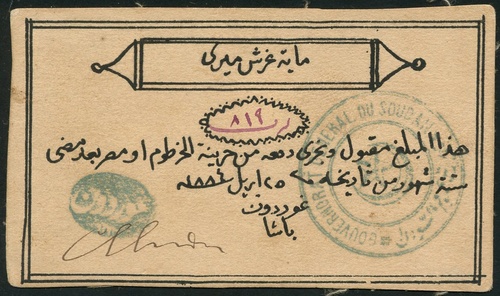 ماية غرش ميرى
٨١٩
هذا المبلغ مقبول وتجرى دفعه من خزينة الخرطوم او مصر بعد مضى
ستة شهور من تاريخه ٢٥ ابريل ١٨٨٤
غوردون
باشا
GOUVERNORAT GENERAL DU SOUDAN